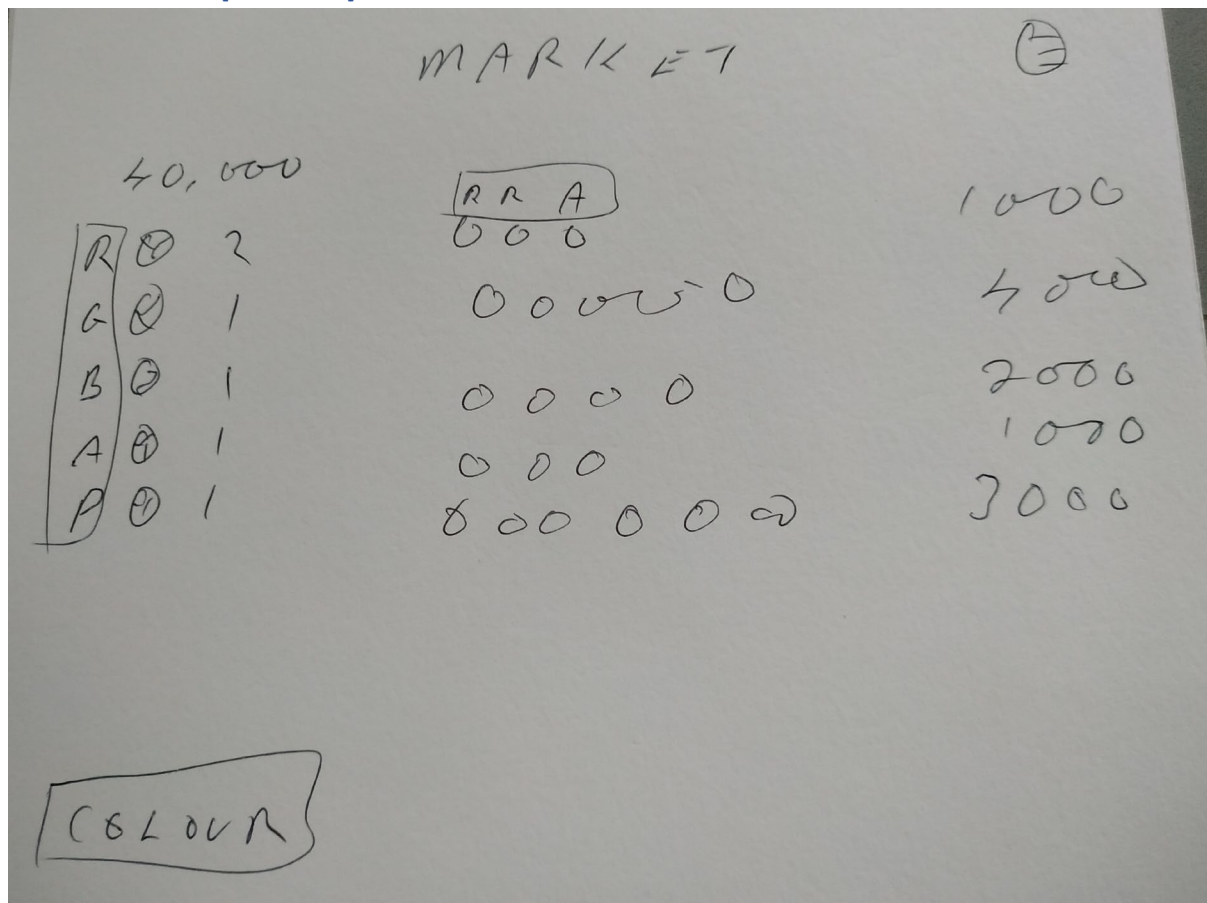 MARKET
40,000 RRA 1000
R 2 000
G 1 00000 4000
B 1 0000 2000
A 1 000 1000
P 1 000000 3000
COLOUR